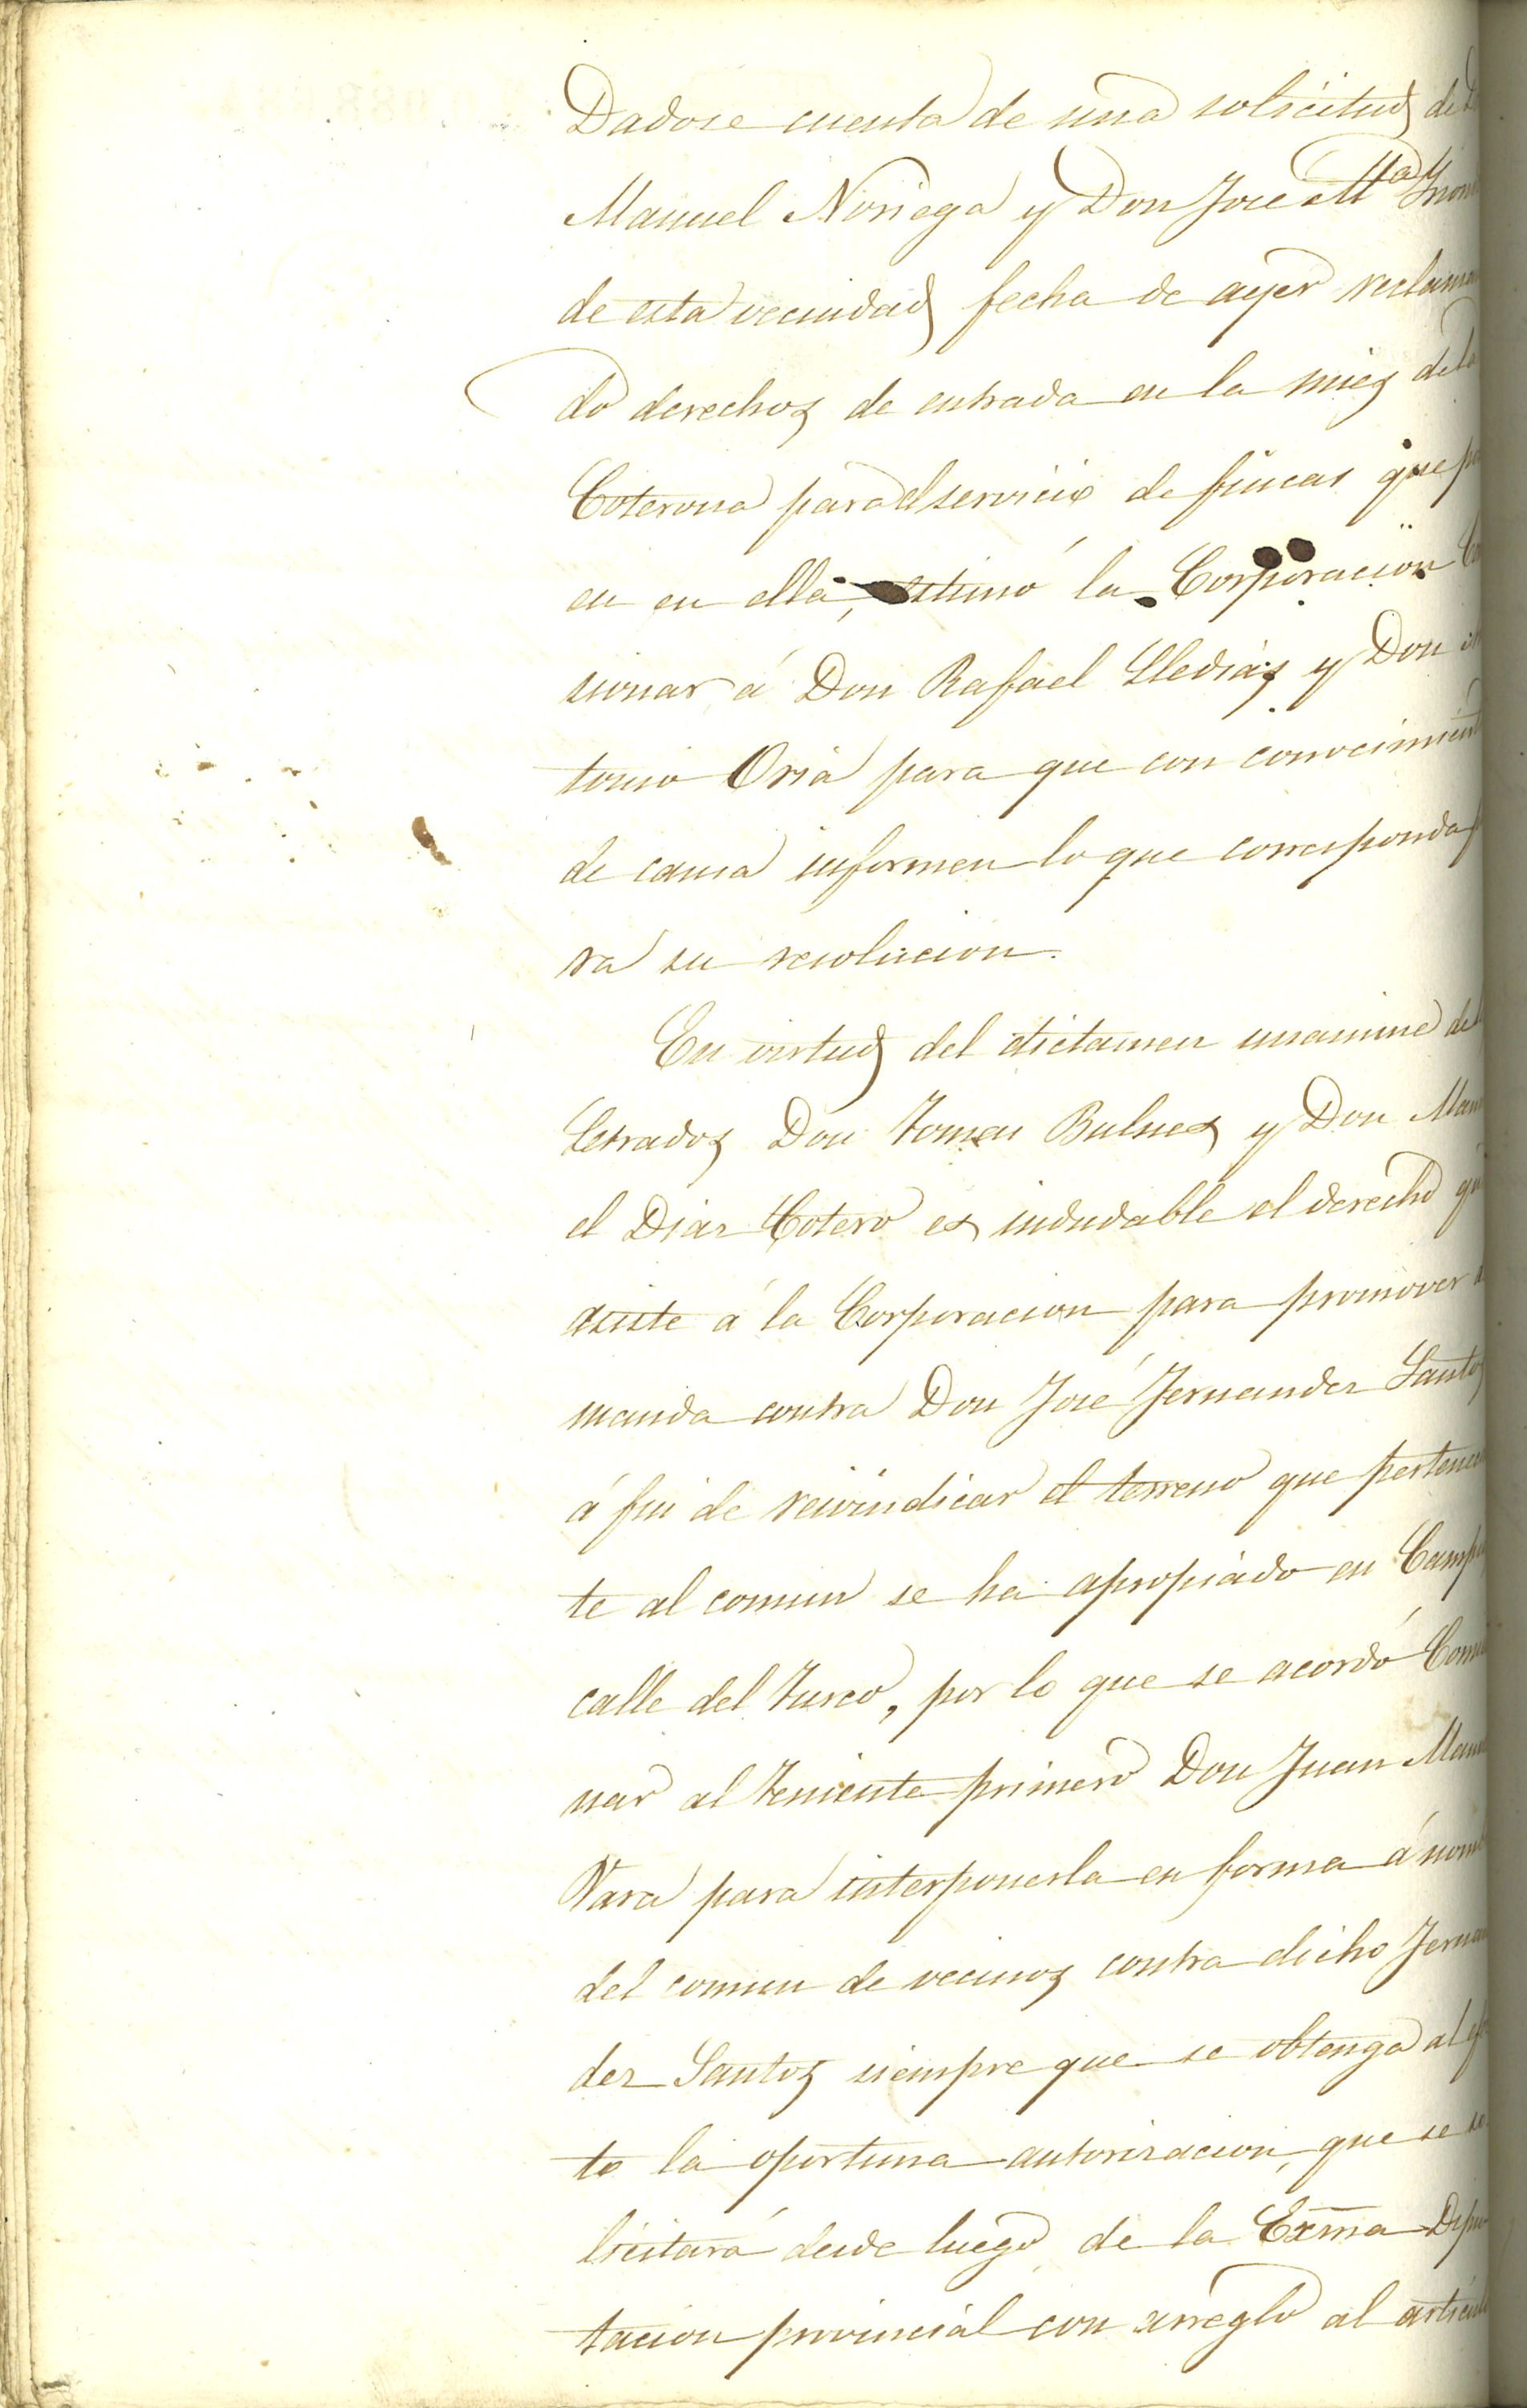 Dadose cuenta de una solicitud de
Manuel Noriega y Don Jose Mª
de esta vecindad fecha de ayer reclama
do derechos de entrada en la mies de la
Coterona para el servicio de fincas que po
en en ella, estimó la Corporacion Co
sionar á Don Rafael Lledias y Don
tonio Oria para que con conocimient
de causa informen lo que corresponda p
ra su resolucion.
En virtud del dictamen unanime de
Letrados Don Tomas Bulnes y Don Manu
el Diaz Cotero es indudable el derecho qu
asiste á la Corporacion para promover
manda contra Don José Fernandez Santos
á fin de reivindicar el terreno que pertenecien
te al comun se ha apropiado en Campo
calle del Turco, por lo que se acordó Comi
nar al teniente primero Don Juan Manu
Vara para interponerla en forma á nomb
del comun de vecinos contra dicho Fernan
dez Santos siempre que se obtenga al efe
to la oportuna autorizacion, que se so
licitará desde luego de la Exma Dipu
tacion provincial con arreglo al articul